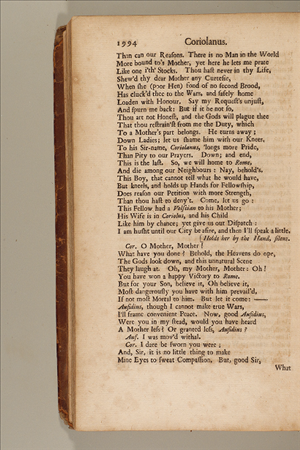 1994 Coriolanus.
Than can our Reasons. There is no Man in the World
More bound to's Mother, yet here he lets me prate
Like one i'th' Stocks. Thou hast never in thy Life,
Shew'd thy dear Mother any Curtesie,
When she (poor Hen) fond of no second Brood,
Has cluck'd thee to the Wars, and safely home
Loaden with Honour. Say my Request's unjust,
And spurn me back: But if it be not so,
Thou art not Honest, and the Gods will plague thee
That thou restrain'st from me the Duty, which
To a Mother's part belongs. He turns away;
Down Ladies; let us shame him with our Knees.
To his Sir-name, Coriolanus, 'longs more Pride,
Than Pity to our Prayers. Down; and end,
This is the last. So, we will home to Rome,
And die among our Neighbours: Nay, behold's.
This Boy, that cannot tell what he would have,
But kneels, and holds up Hands for Fellowship,
Does reason our Petition with more Strength,
Than thou hast to deny't. Come, let us go:
This Fellow had a Volscian to his Mother;
His Wife is in Corioles, and his Child
Like him by chance; yet give us our Dispatch:
I am husht until our City be afire, and then I'll speak a little.
[Holds her by the Hand, silent.
Cor. O Mother, Mother!
What have you done? Behold, the Heavens do ope,
The Gods look down, and this unnatural Scene
They laugh at. Oh, my Mother, Mother: Oh!
You have won a happy Victory to Rome.
But for your Son, believe it, Oh believe it,
Most dangerously you have with him prevail'd,
If not most Mortal to him. But let it come: ——
Aufidius, though I cannot make true Wars,
I'll frame convenient Peace. Now, good Aufidius,
Were you in my stead, would you have heard
A Mother less? Or granted less, Aufidius?
Auf. I was mov'd withal.
Cor. I dare be sworn you were;
And, Sir, it is no little thing to make
Mine Eyes to sweat Compassion. But, good Sir,
What